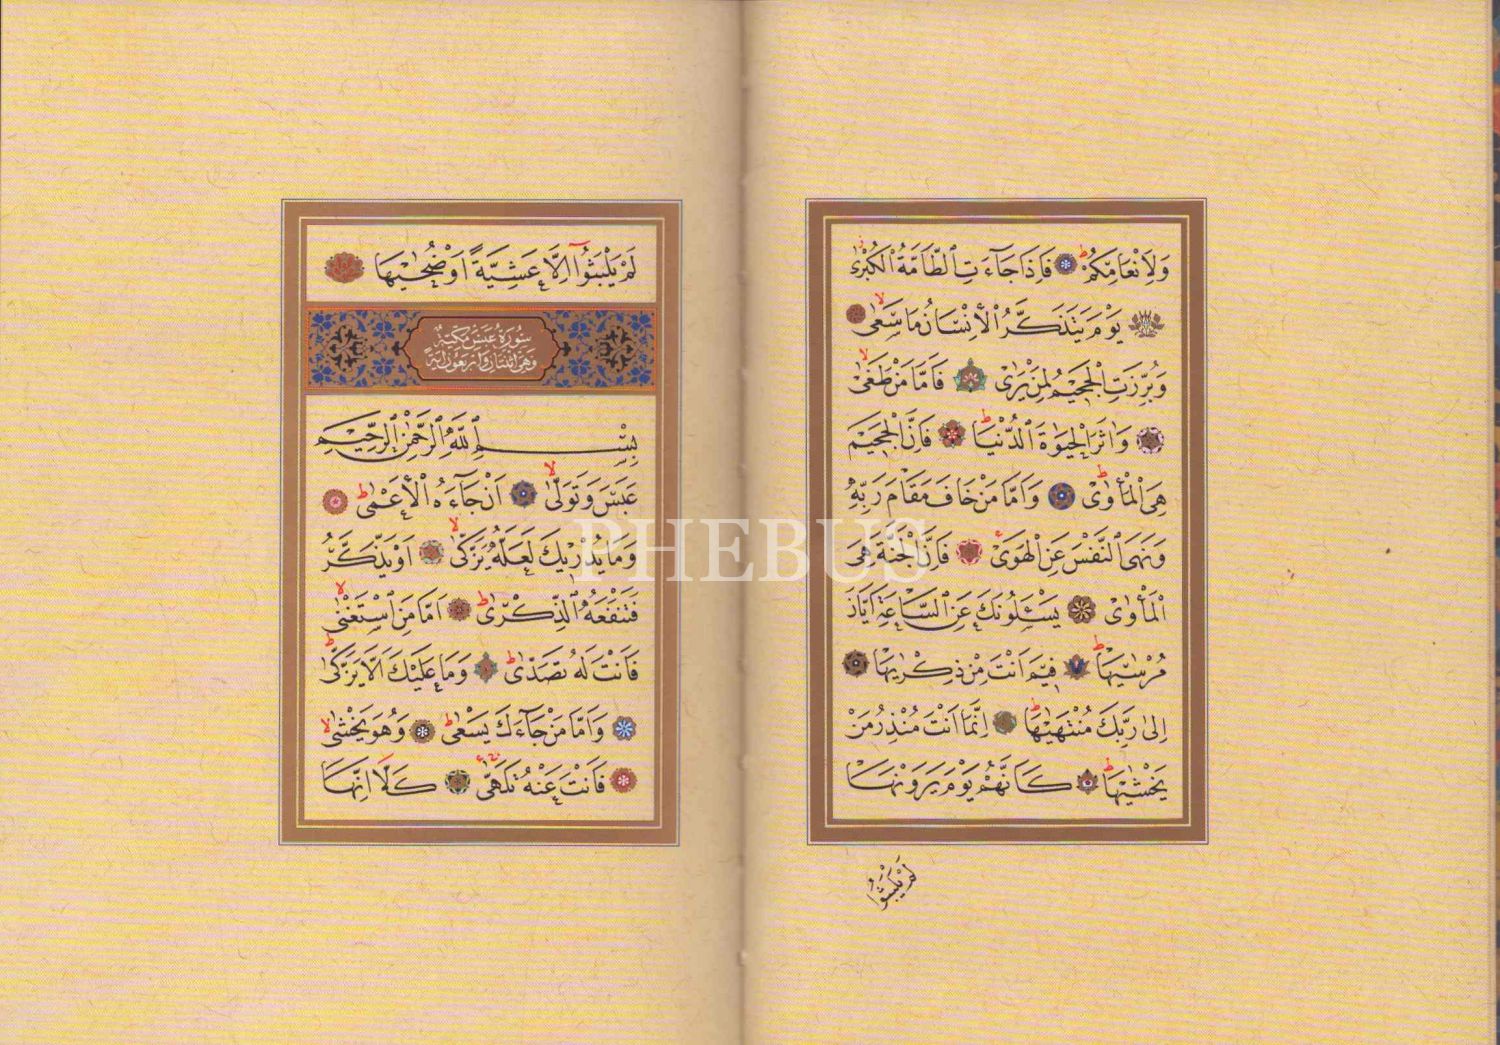 وَلِاَنْعَامِكُمْ ط فَاِذَا جَاءَتِ الطَّامَّةُ الْكُبْرٰى ز
يَوْمَ يَتَذَكَّرُ الْاِنْسَانُ مَا سَعٰى لا
وَبُرِّزَتِ الْجَحِيمُ لِمَنْ يَرٰى فَاَمَّا مَنْ طَغٰى لا
وَاٰثَرَ الْحَيٰوةَ الدُّنْيَا ط فَاِنَّ الْجَحِيمَ
هِيَ الْمَأْوٰى ط وَاَمَّا مَنْ خَافَ مَقَامَ رَبِّهِ
وَنَهَى النَّفْسَ عَنِ الْهَوٰى فَاِنَّ الْجَنَّةَ هِيَ
الْمَأْوٰى يَسْئَلُونَكَ عَنِ السَّاعَةِ اَيَّانَ
مُرْسٰيهَا ط فِيمَ اَنْتَ مِنْ ذِكْرٰيهَا
اِلٰى رَبِّكَ مُنْتَهٰيهَا ط اِنَّمَا اَنْتَ مُنْذِرُ مَنْ
يَخْشٰيهَا ط كَاَنَّهُمْ يَوْمَ يَرَوْنَهَا
لَمْ يَلْبَثُوا
لَمْ يَلْبَثُوا اِلَّا عَشِيَّةً اَوْ ضُحٰيهَا
سُورَةُ عَبَسَ مَكِّيَّةٌ
وَهِيَ اثْنَتَانِ وَاَرْبَعُونَ اٰيَةً
بِسْمِ اللّٰهِ الرَّحْمٰنِ الرَّحِيمِ
عَبَسَ وَتَوَلّٰى لا اَنْ جَاءَهُ الْاَعْمٰى ط
وَمَا يُدْرِيكَ لَعَلَّهُ يَزَّكّٰى لا اَوْ يَذَّكَّرُ
فَتَنْفَعَهُ الذِّكْرٰى ط اَمَّا مَنِ اسْتَغْنٰى لا
فَاَنْتَ لَهُ تَصَدّٰى ط وَمَا عَلَيْكَ اَلَّا يَزَّكّٰى ط
وَاَمَّا مَنْ جَاءَكَ يَسْعٰى ط وَهُوَ يَخْشٰى لا
فَاَنْتَ عَنْهُ تَلَهّٰى كَلَّا اِنَّهَا
PHEBUS